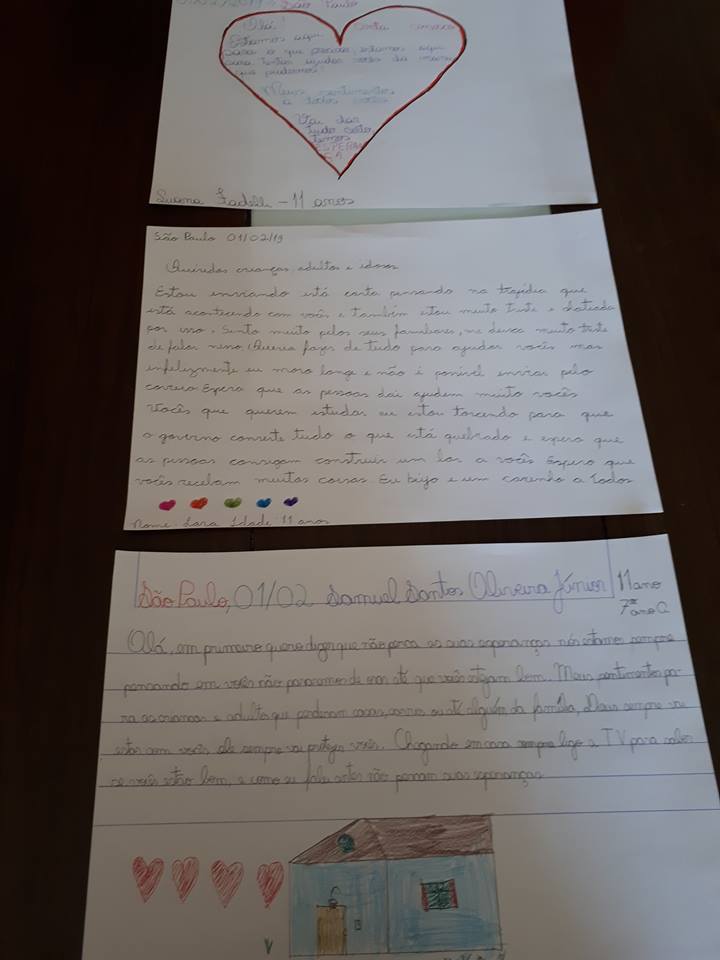 01/02/2019 - São Paulo
Olá! Conta conosco
Estamos aqui
para o que precisar, estamos aqui
para tentar ajudar vocês da maneira
que pudermos!
Meus sentimentos
a todos vocês
Vai dar
tudo certo,
temos
ESPERAN
ÇA
Luana Fadelli - 11 anos
São Paulo 01/02/19
Queridos crianças, adultos e idosos
Estou enviando está carta pensando na tragédia que
está acontecendo com vocês e também estou muito triste e chateada
por isso. Sinto muito pelos seus familiares, me deixa muito triste
de falar nisso. Queria fazer de tudo para ajudar vocês mas
infelizmente eu moro longe e não é possivel enviar pelo
correio. Espero que as pessoas dai ajudem muito vocês
Vocês que querem estudar eu estou torcendo para que
o governo conserte tudo o que está quebrado e espero que
as pessoas consigam construir um lar a vocês Espero que
vocês recebam muitas coisas. Eu bijo e um carinho a todos
Nome: Lara Idade: 11 anos
São Paulo, 01/02 Samuel Santos Oliveira Júnior 11 ano
7º ano A
Olá, em primeiro quero dizer que não perca as suas esperanças nós estamos sempre
pensando em vocês não pararemos de orar até que vocês estejam bem. Meus sentimentos pa-
ra as crianças e adultos que perderam casas, carros ou até alguém da família, Deus sempre vai
estar com vocês ele sempre vai proteger vocês. Chegando em casa sempre ligo a TV para saber
se vocês estão bem, e como eu falei antes não percam suas esperanças.